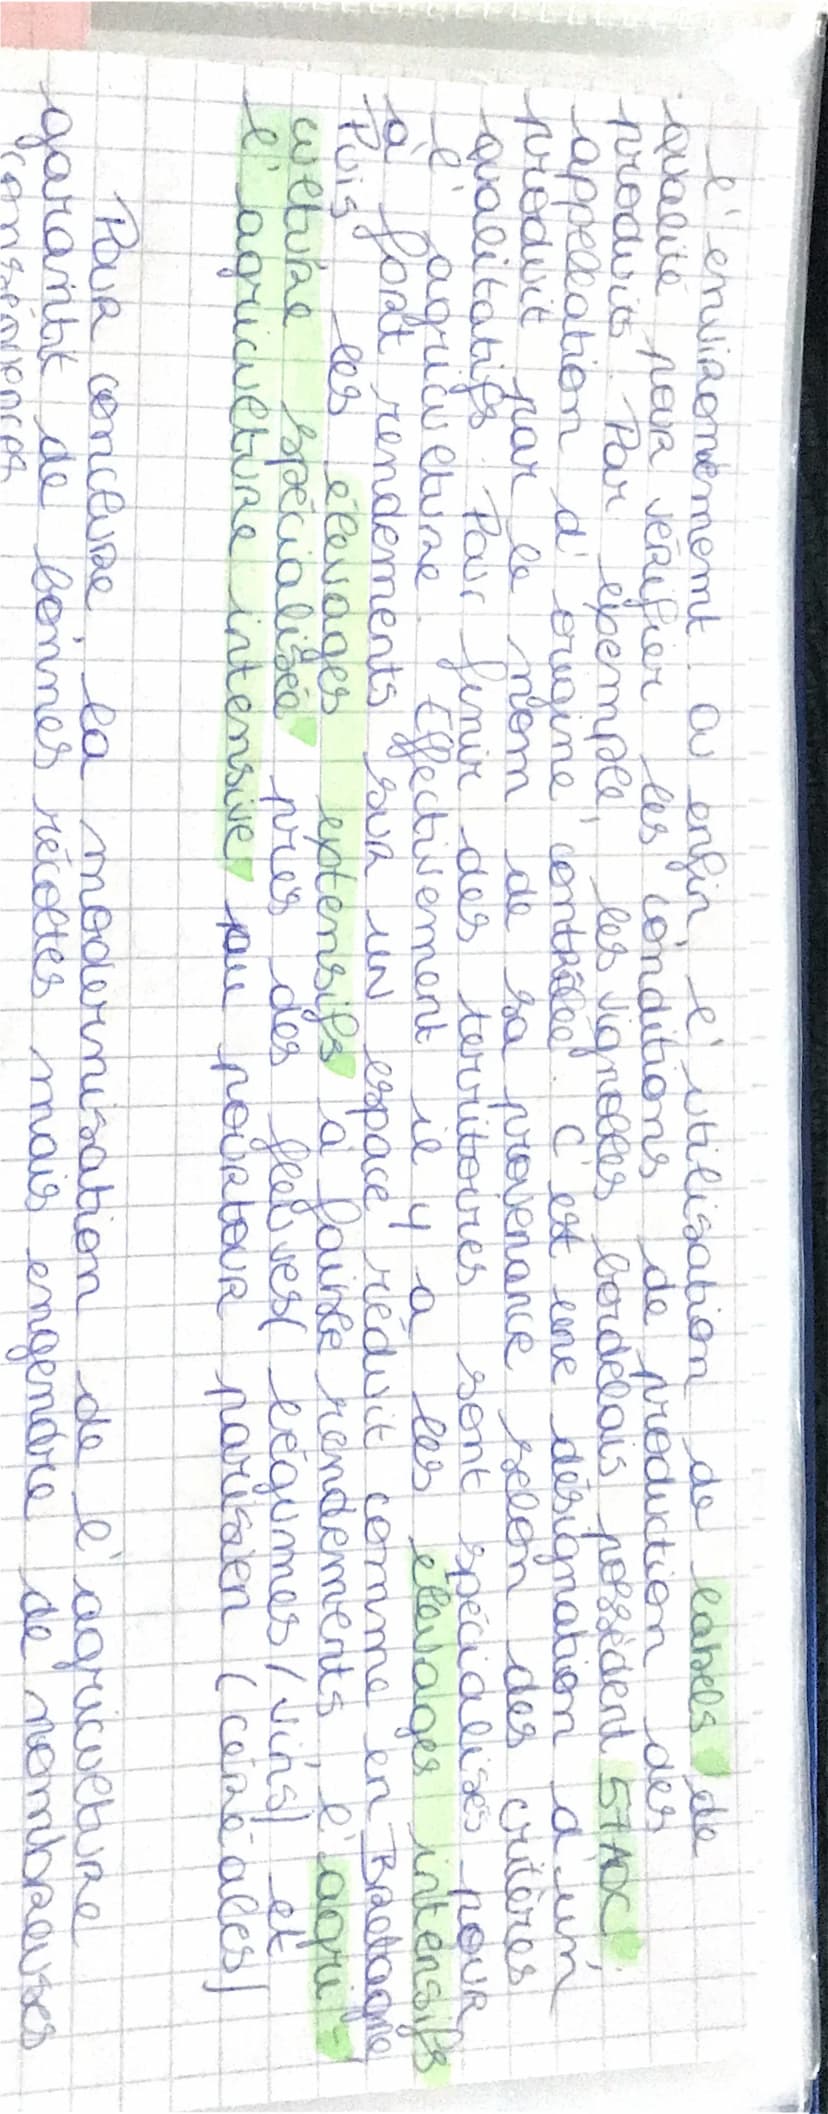 l'environnement. Ou enfin l'utilisation de labels de
qualité pour vérifier les conditions de production des
produits. Par exemple, les vignobles bordelais possèdent 57 AOC
appellation d'origine contrôlée. C'est une désignation d'un
produit par le nom de sa provenance selon des critères
qualitatifs. Pour finir des territoires sont spécialisés pour
l'agriculture. Effectivement il y a les élevages intensifs
à fort rendements sur un espace réduit comme en Bretagne
Puis les élevages extensifs à faible rendements l'agri-
culture spécialisée près des fleuves (légumes/vins) et
l'agriculture intensive au pourtour parisien (céréales)
Pour conclure la modernisation de l'agriculture
garantit de bonnes récoltes mais engendre de nombreuses
conséquences